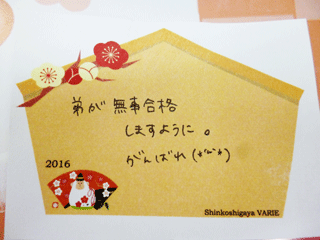 弟が無事合格
しますように。
がんばれ(*^^*)
2016
Shinkoshigaya VARIE